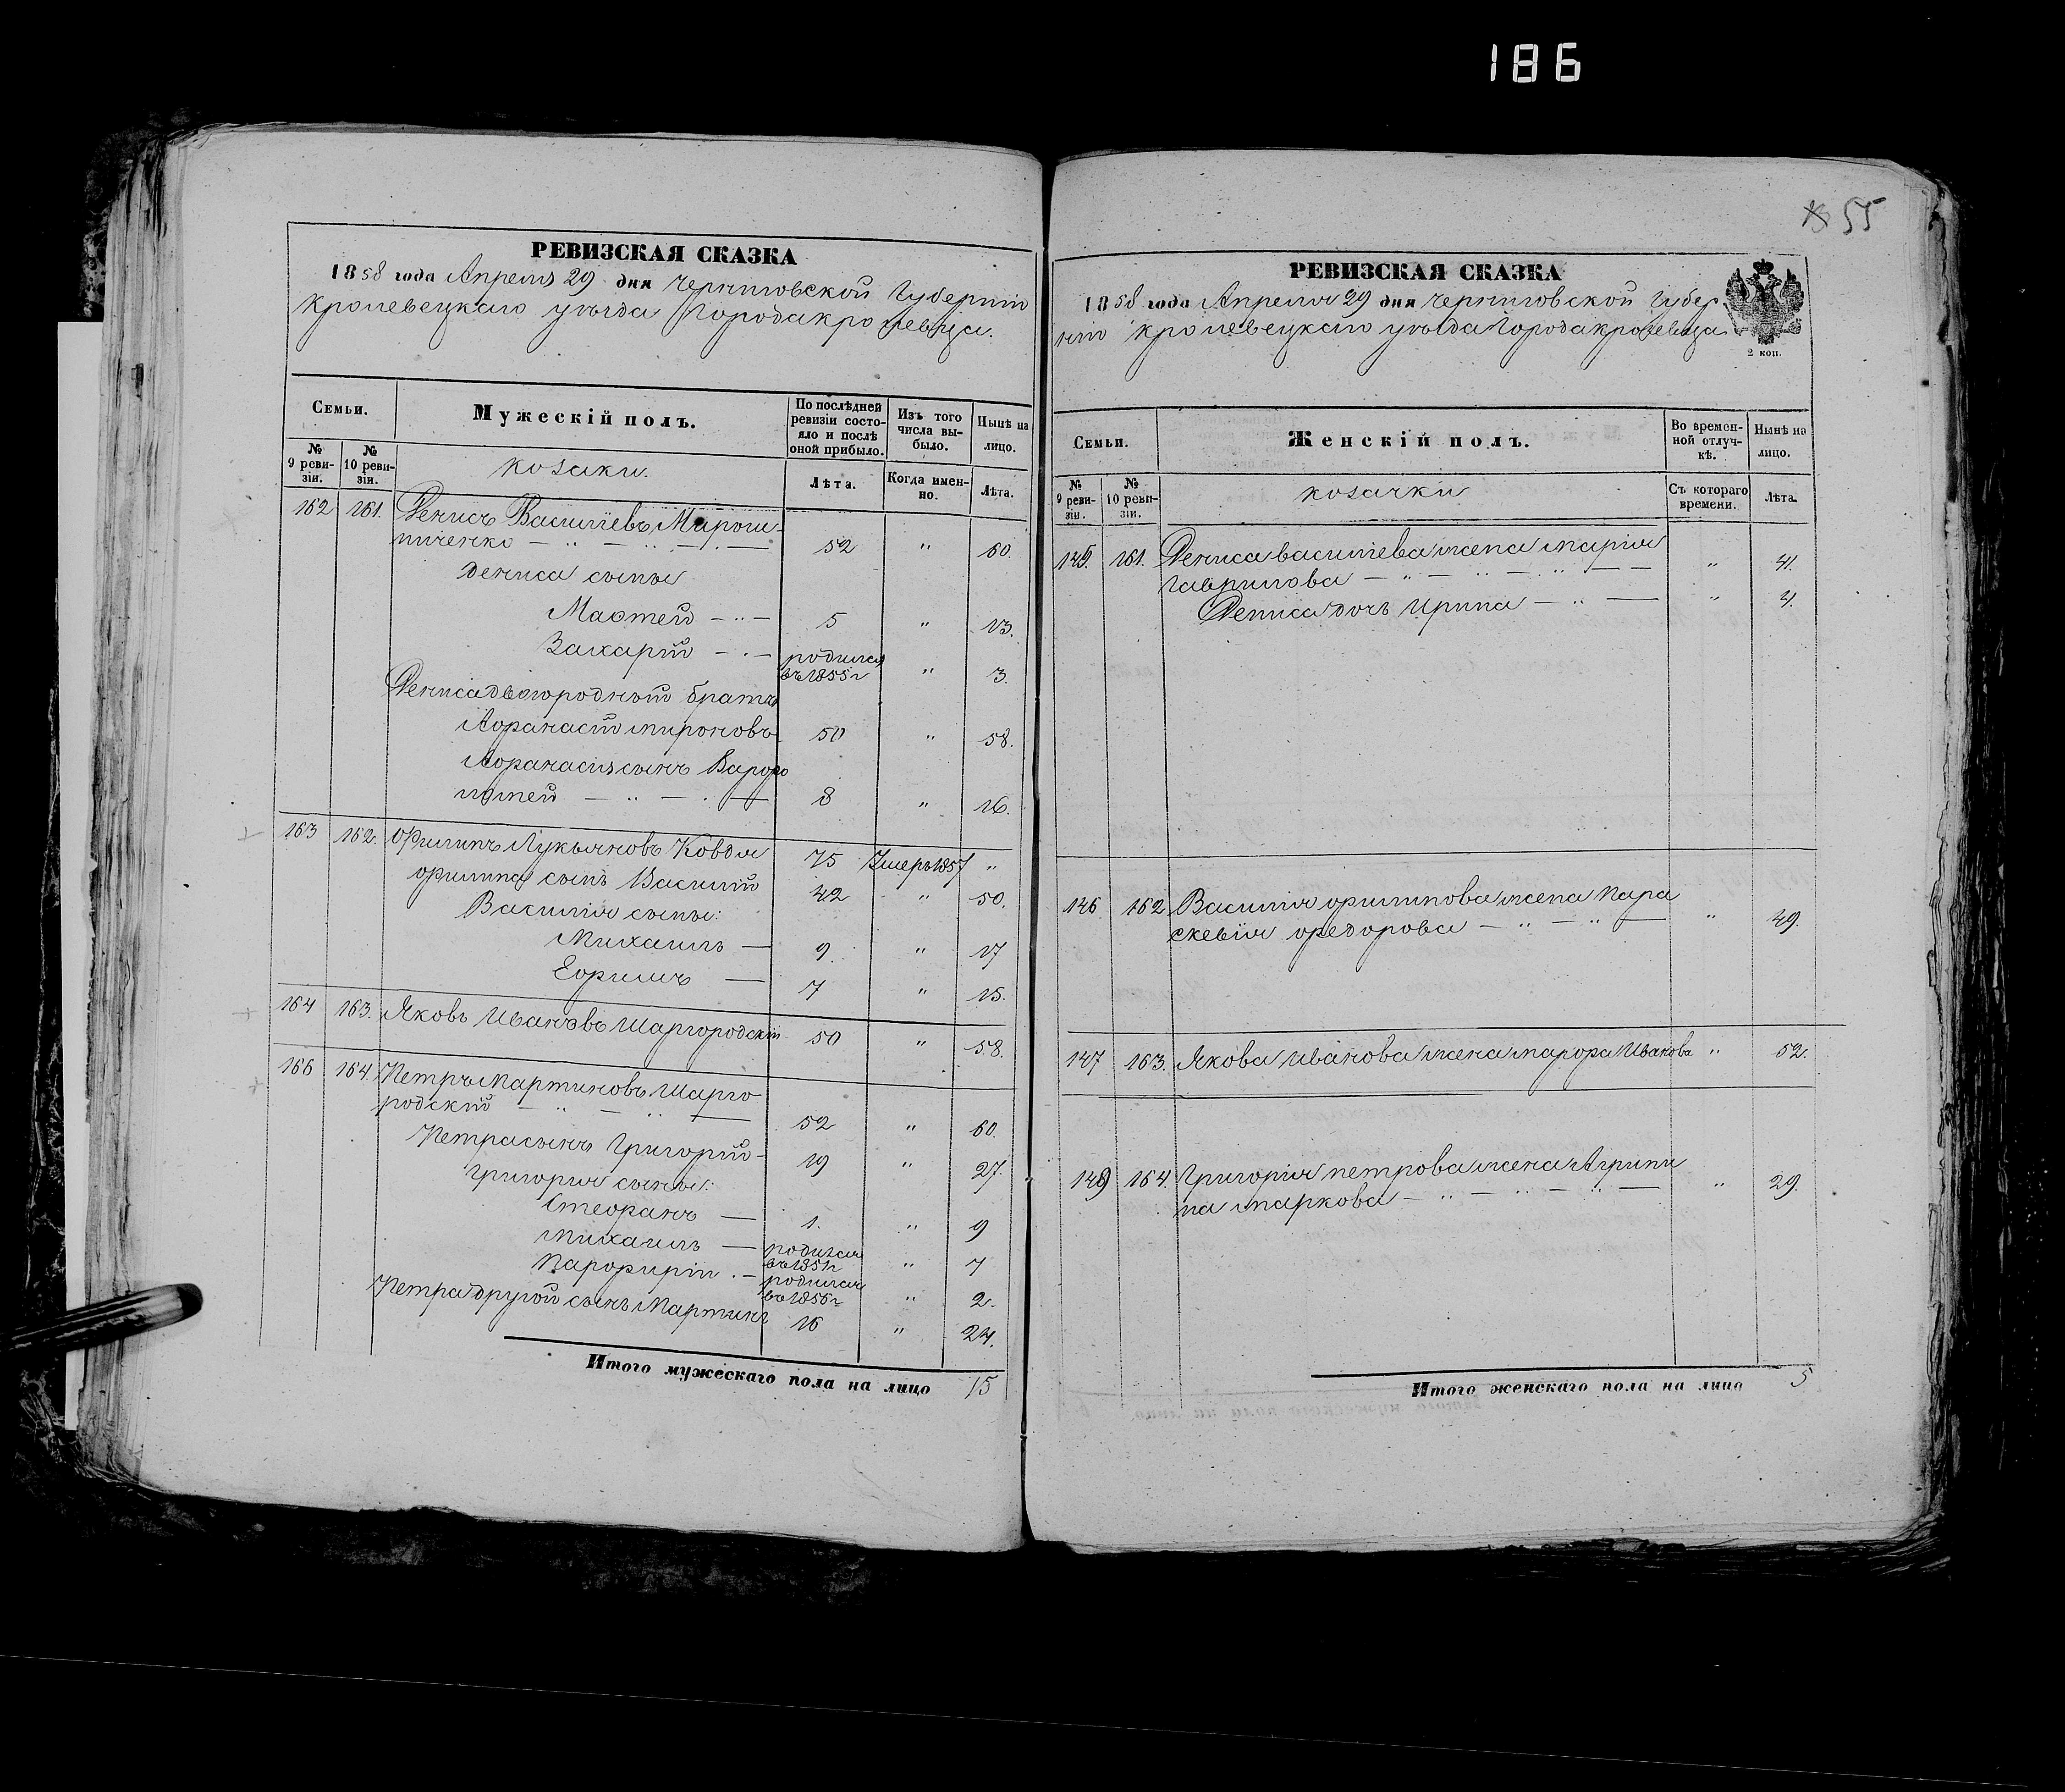 186
55
РЕВИЗСКАЯ СКАЗКА
1858 года Апреля 29 дня Черниговской Губерніи
Кролевецкаго уѣзда Города Кролевца.
Семьи.
Мужескій полъ.
По послѣдней ревизіи состояло и послѣ оной прибыло.
Изъ того числа выбыло.
Нынѣ на лицо.
№ 9 ревизіи.
№ 10 ревизіи.
Козаки.
Лѣта.
Когда именно.
Лѣта.
162 161. Денисъ Василіевъ Мирош-
ниченко — " — " — . — 52 " 60.
Дениса сыны
Матфей — " — 5 " 13.
Захарій — . — родился въ 1855 г " 3.
Дениса двоюродный братъ
Афанасій Мироновъ 50 " 58.
Афанасія сынъ Варфо
ломей — " — . — 8 " 16.
163 162. Филипъ Лукьяновъ Ковдя 75 Умеръ 1857 "
Филипа сынъ Василій 42 " 50.
Василія сыны:
Михаилъ — 9. " 17
Ефимъ — 7 " 15.
164 163. Яковъ Ивановъ Шаргородскій 50 " 58.
166 164. Петръ Мартиновъ Шарго
родскій — " — " — 52 " 60.
Петра сынъ Григорій - 19 " 27.
Григорія сыны:
Стефанъ — 1. " 9
Михаилъ — родился въ 1851 г " 7
Парфирій . — родился въ 1856 г " 2.
Петра другой сынъ Мартинъ 16 " 24.
Итого мужескаго пола на лицо 15
РЕВИЗСКАЯ СКАЗКА
1858 года Апреля 29 дня Черниговской Губер
ніи Кролевецкаго уѣзда Города Кролевца
2 коп.
Семьи.
Женскій полъ.
Во временной отлучкѣ.
Нынѣ на лицо.
№ 9 ревизіи.
№ 10 ревизіи.
Козачки
Съ котораго времени.
Лѣта.
145. 161. Дениса Василіева жена Марія
Гаврилова — " — " — " — — " 41.
Дениса дочь Ирина — " — " 4.
146 162 Василія Филипова жена Пара
скевія Федорова — " — " — " 49.
147 163. Якова Иванова жена Марфа Иванова " 52.
149 164. Григорія Петрова жена Агрипи
на Маркова — " — " — " — " 29.
Итого женскаго пола на лицо 5